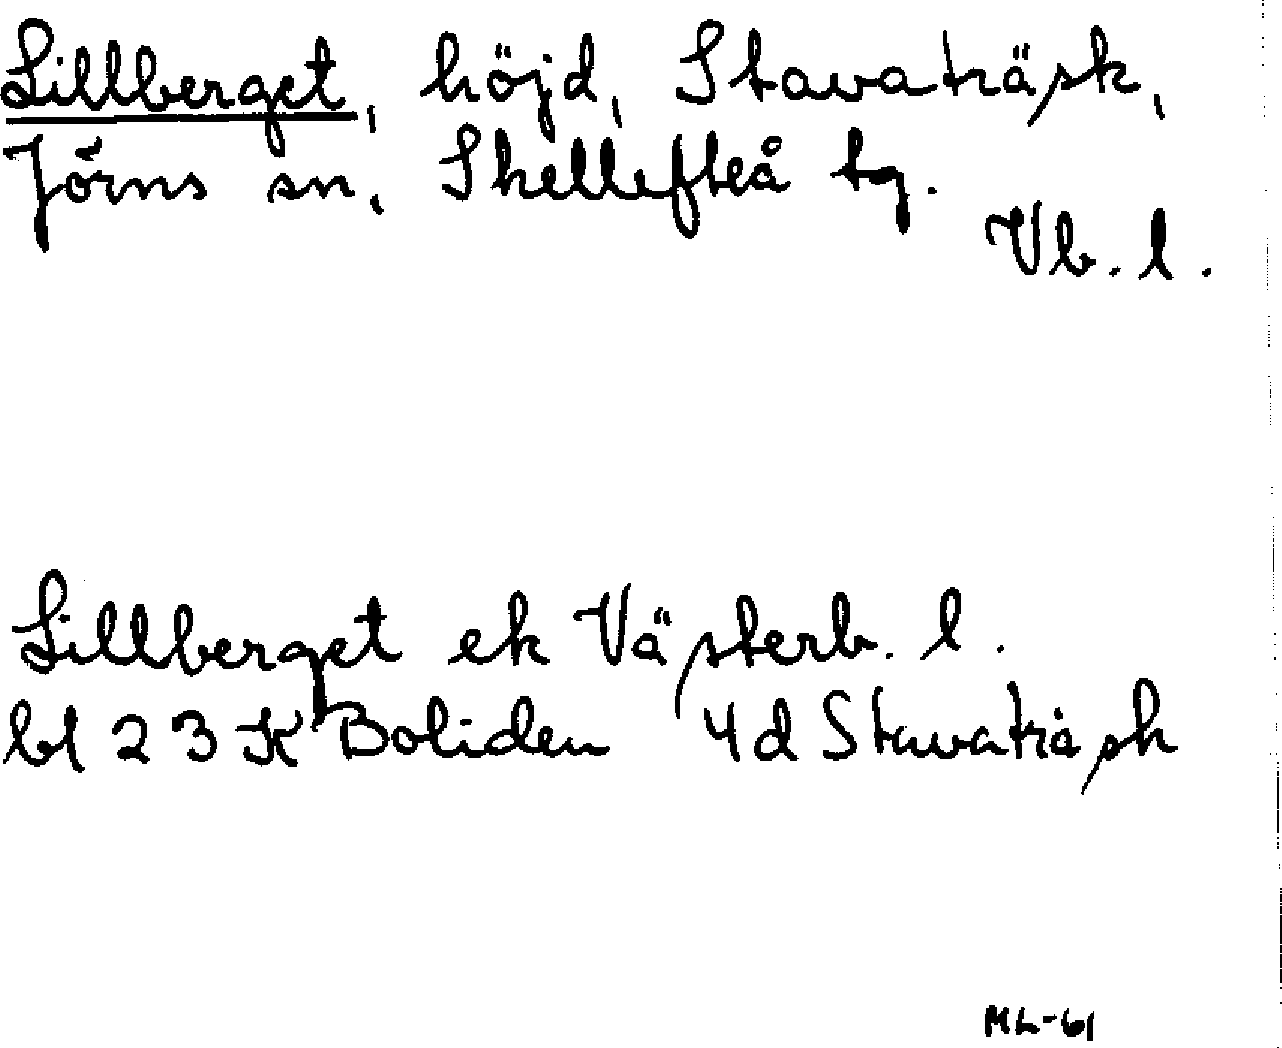 Lillberget, höjd, Stavaträsk,
Jörns sn, Skellefteå tg.
Vb. l.
Lillberget ek Västerb. l.
bl 23 K Boliden 4d Stavaträsk
ML-61